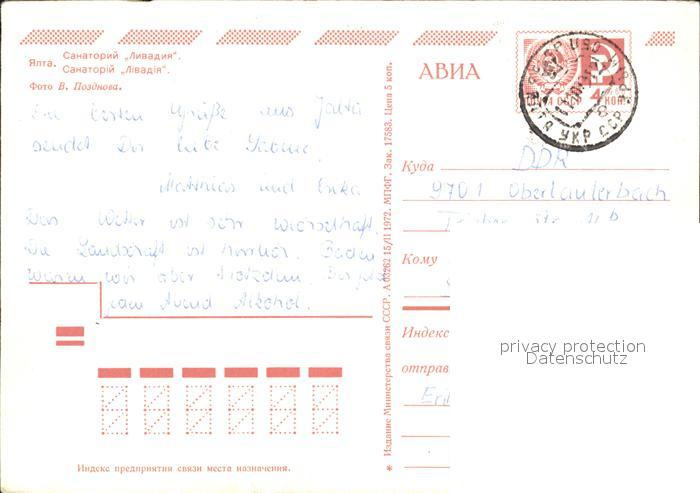 Ялта. Санаторий „Ливадия".
Санаторій „Лівадія".
Фото В. Позднова.
Die besten Grüße aus Jalta
sendet Dir liebe
Matthias und
Das Wetter ist sehr
Die Landschaft ist herrlich. Baden
waren wir aber trotzdem.
jeden Abend Alkohol.
Индекс предприятия связи места назначения.
* Издание Министерства связи СССР. А 03262 15/II 1972. МПФГ. Зак. 17583. Цена 5 коп.
АВИА
ПОЧТА СССР 4 КОП
ЯЛТА УКР ССР
Куда DDR
9701 Oberlauterbach
Str. 11 b
Кому
Индекс
отправ
privacy protection
Datenschutz